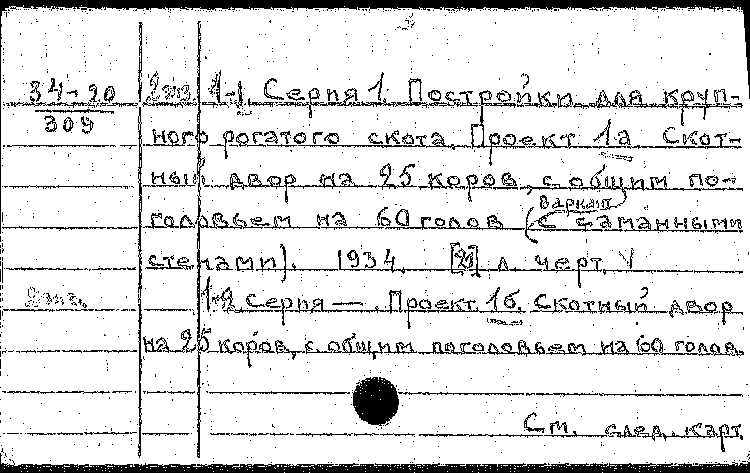 34-20 2экз. 1-1. Серия 1. Постройки для круп-
309 ного рогатого скота. Проект 1а Скот-
ный двор на 25 коров, с общим по-
Вариант
головьем на 60 голов (с саманными
стенами). 1934. [21] л. черт. V
2экз. 1-2 Серия —. Проект 1б. Скотный двор
на 25 коров, с общим поголовьем на 60 голов.
См. след. карт.